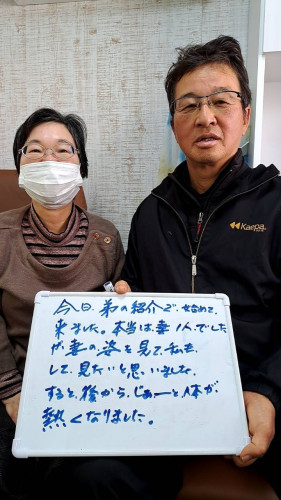 Kaepa
今日、弟の紹介で、始めて、
来ました。本当は妻1人でした
が妻の姿を見て、私も、
して、見たいと思いました、
すると、後から、じあーと、体が、
熱くなりました。